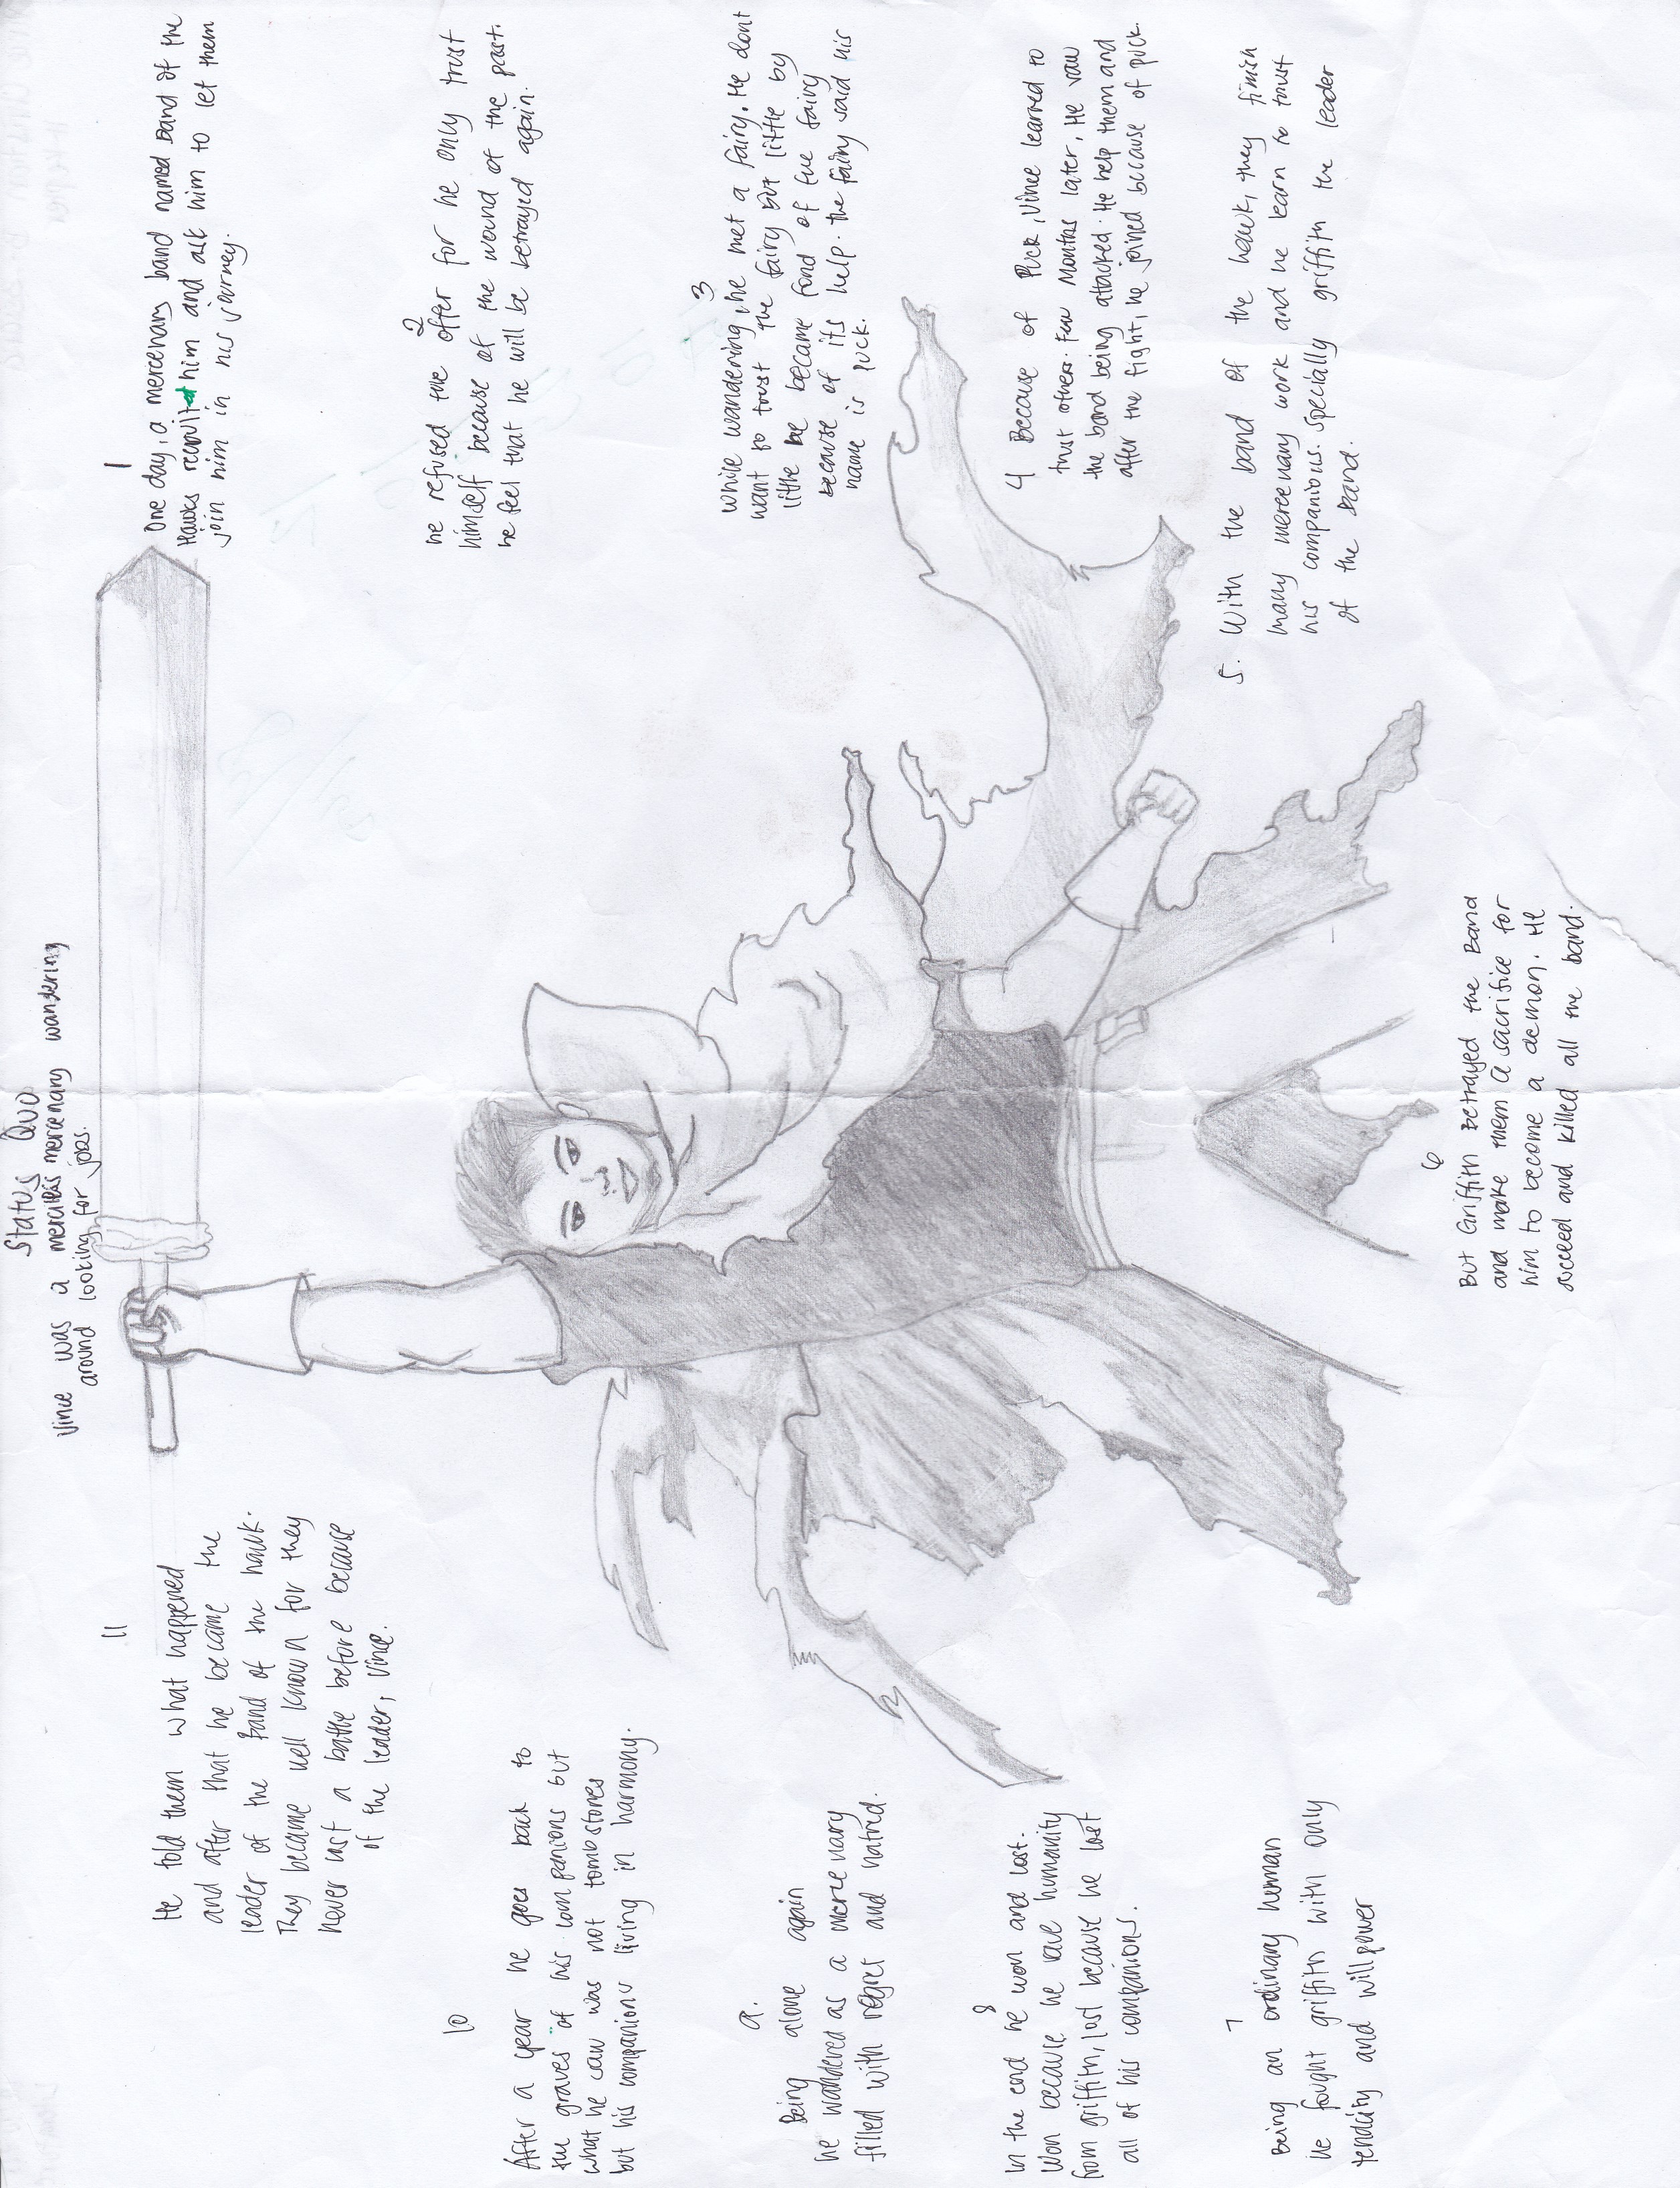 Status Quo
Vince was a merciless mercenary wandering
around looking for jobs.
1
One day, a mercenary band named Band of the
Hawks recruited him and ask him to let them
join him in his journey.
2
he refused the offer for he only trust
himself because of the wound of the past.
he feel that he will be betrayed again.
3
While wandering, he met a fairy. He dont
want to trust the fairy but little by
little he became fond of the fairy
because of its help. the fairy said his
name is puck.
4 Because of Puck, Vince learned to
trust others. Few Months later, He saw
the band being attacked. He help them and
after the fight, he joined because of puck.
5. With the band of the hawk, they finish
many mercenary work and he learn to trust
his companions. Specially griffith the leader
of the Band.
6
But Griffith Betrayed the Band
and make them a sacrifice for
him to become a demon. He
succeed and killed all the band.
7
Being an ordinary human
he fought griffith with only
tenacity and willpower
8
In the end he won and lost.
Won because he save humanity
from griffith, lost because he lost
all of his companions.
9.
Being alone again
he wandered as a mercenary
filled with regret and hatred.
10
After a year he goes back to
the graves of his companions but
what he saw was not tombstones
but his companions living in harmony.
11
He told them what happened
and after that he became the
leader of the Band of the hawk.
They became well known for they
never lost a battle before because
of the leader, Vince.